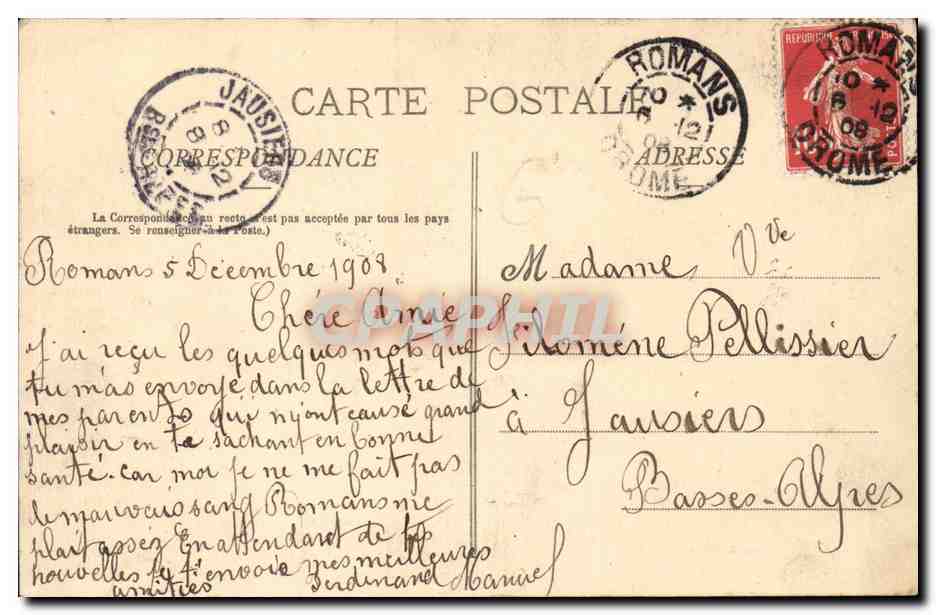 CARTE POSTALE
CORRESPONDANCE
ADRESSE
La Correspondance au recto n'est pas acceptée par tous les pays
étrangers. Se renseigner à la Poste.)
JAUSIERS
8 12
Bses ALPES
ROMANS
6 12
08
DROME
REPUBLIQUE
POSTES
ROMANS
6 12
08
DROME
CARPHIL
Romans 5 Décembre 1908
Chére Amie
J'ai reçu les quelques mots que
tu m'as envoyé dans la lettre de
mes parents qui m'ont causé grand
plaisir en te sachant en bonne
santé. car moi je ne me fait pas
de mauvais sang Romans me
plait assez En attendant de tes
nouvelles je t'envoie mes meilleures
amitiés Ferdinand Manuel
Madame Vve
Filoméne Pellissier
à Jausiers
Basses-Alpes